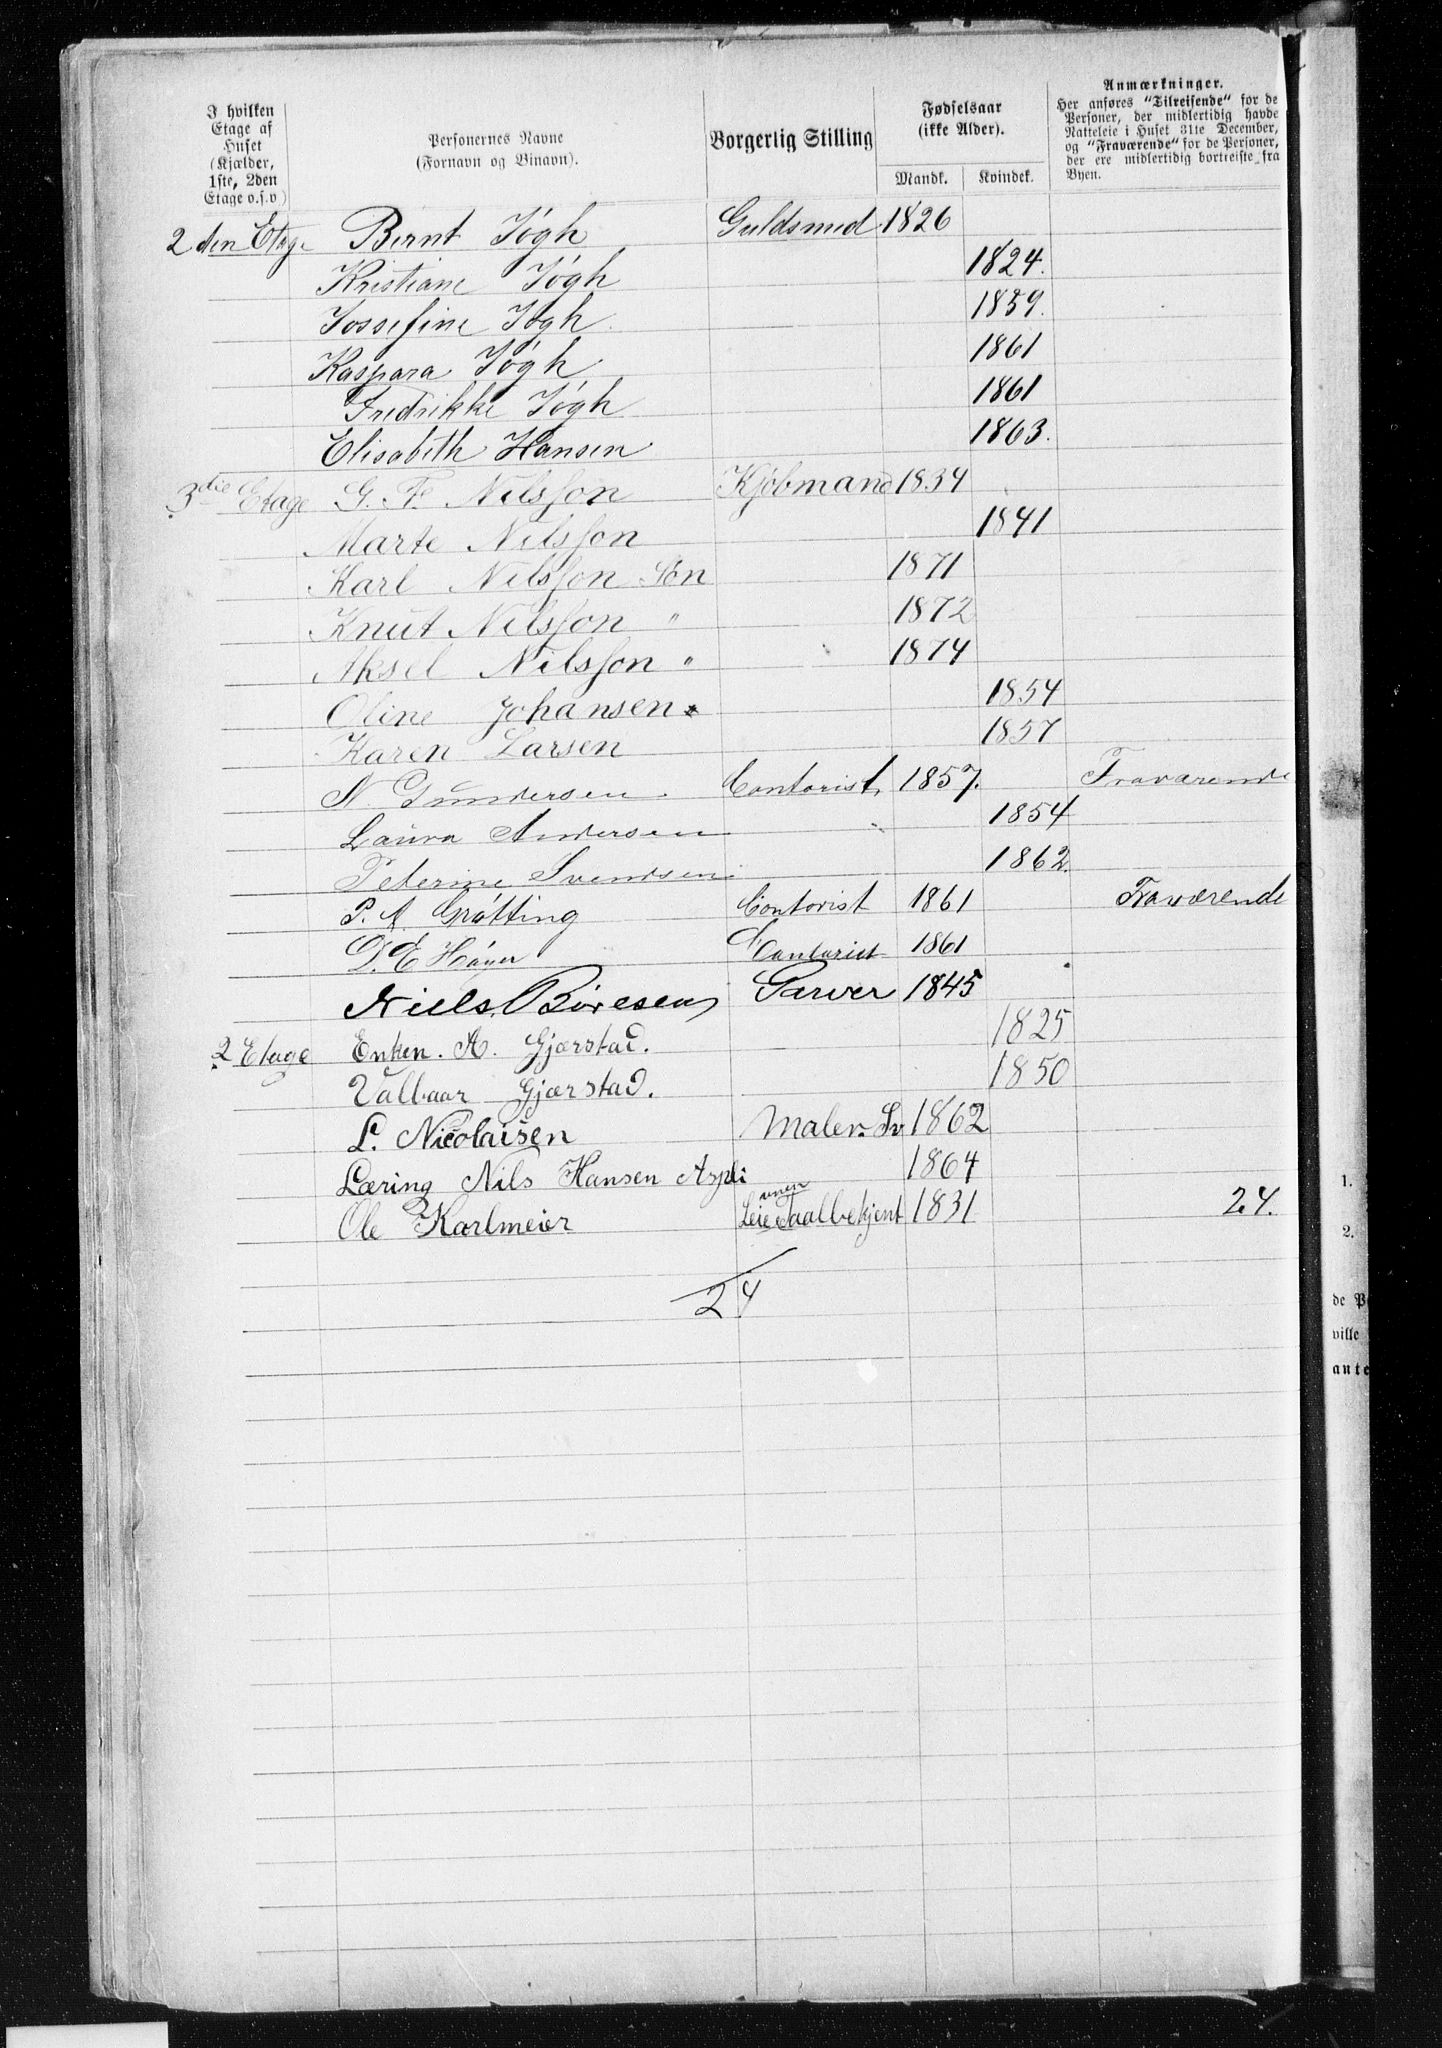 I hvilken Etage af Huset (Kjælder, 1ste, 2den Etage o.s.v)
Personernes Navne (Fornavn og Binavn).
Borgerlig Stilling
Fødselsaar (ikke Alder).
Mandk. Kvindek.
Anmærkninger.
Her anføres "Tilreisende" for de Personer, der midlertidig havde Natteleie i Huset 31te December, og "Fraværende" for de Personer, der ere midlertidig bortreiste fra Byen.
2den Etage Bernt Iøgh Guldsmed 1826
Kristiane Iøgh 1824.
Iossefine Iøgh 1859.
Kaspara Iøgh 1861
Fredrikke Iøgh 1861
Elisabeth Hansen 1863.
3die Etage G. F. Nilsson Kjøbmand 1834
Marte Nilsson 1841
Karl Nilsson Søn 1871
Knut Nilsson " 1872
Aksel Nilsson " 1874
Oline Johansen 1854
Karen Larsen 1857
N. Gundersen Contorist, 1857. Fraværende
Laura Andersen 1854
Peterine Svendsen 1862.
P. A. Grøtting Contorist 1861 Fraværende
D. E Høyer Contorist 1861
Niels Børesen Garver 1845
2 Etage Enken. A. Gjærstad. 1825
Valbaar Gjærstad. 1850
L. Nicolaisen Maler Sv 1862
Læring Nils Hansen Aspli 1864
Ole Karlmeier 1831 24.
24
1.
2.
de P
ville
ante